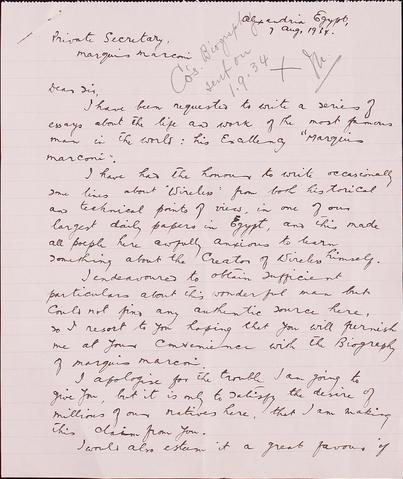 Alexandria Egypt,
7 Aug, 1934.
Private Secretary,
Marquis Marconi
Co's Biography
sent on
1.9.34
Dear Sir,
I have been requested to write a series of
essays about the life and work of the most famous
man in the world: his Excellency "Marquis
Marconi".
I have had the honour to write occasionally
some lines about 'Wireless' from both historical
and technical points of view, in one of our
largest daily papers in Egypt, and this made
all people here awfully anxious to learn
something about the Creator of Wireless himself.
I endeavoured to obtain sufficient
particulars about this wonderful man but
could not find any authentic source here,
so I resort to you hoping that you will furnish
me at your convenience with the Biography
of Marquis Marconi.
I apologise for the trouble I am going to
give you, but it is only to satisfy the desire of
millions of our natives here, that I am making
this claim from you.
I would also esteem it a great favour if